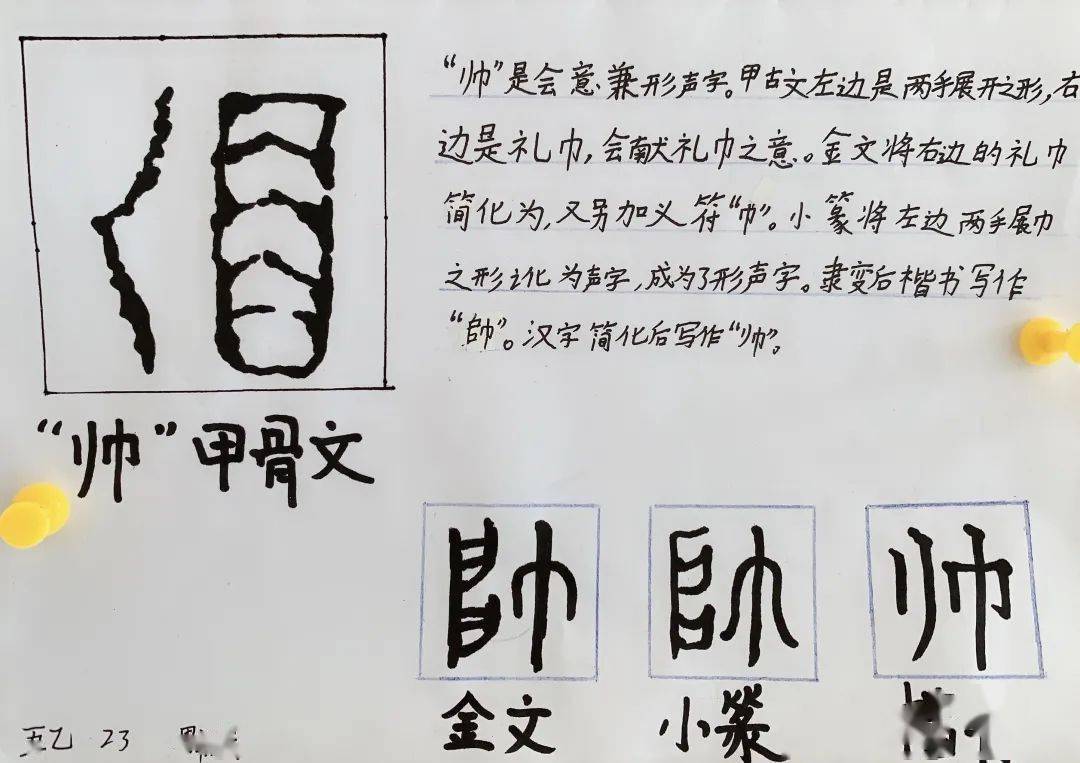 “帅”是会意兼形声字。甲古文左边是两手展开之形，右
边是礼巾，会献礼巾之意。金文将右边的礼巾
简化为，又另加义符“巾”。小篆将左边两手展巾
之形讹化为声字，成为了形声字。隶变后楷书写作
“帥”。汉字简化后写作“帅”。
“帅”甲骨文
帥 帥 帅
金文 小篆
五乙 23